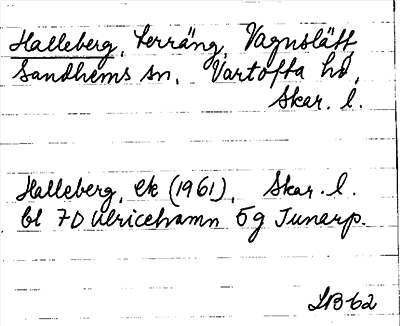 Halleberg, terräng, Vagnslätt,
Sandhems sn, Vartofta hd,
Skar. l.
Halleberg, ek (1961), Skar. l.
bl 7D Ulricehamn 5g Junarp.
LB-62